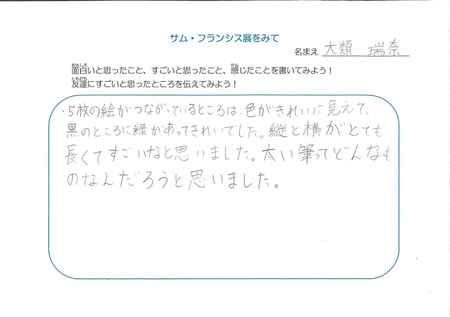 サム・フランシス展をみて
名まえ 大類 瑞奈
面白いと思ったこと、すごいと思ったこと、感じたことを書いてみよう！
友達にすごいと思ったところを伝えてみよう！
・5枚の絵がつながっているところは、色がきれいに見えて、
黒のところに緑があってきれいでした。縦と横がとても
長くてすごいなと思いました。太い筆ってどんなも
のなんだろうと思いました。